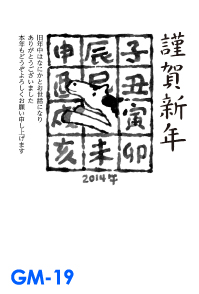 謹賀新年
子丑寅卯
辰巳未
申酉戌亥
2014年
旧年中はなにかとお世話になり
ありがとうございました
本年もどうぞよろしくお願い申し上げます
GM-19